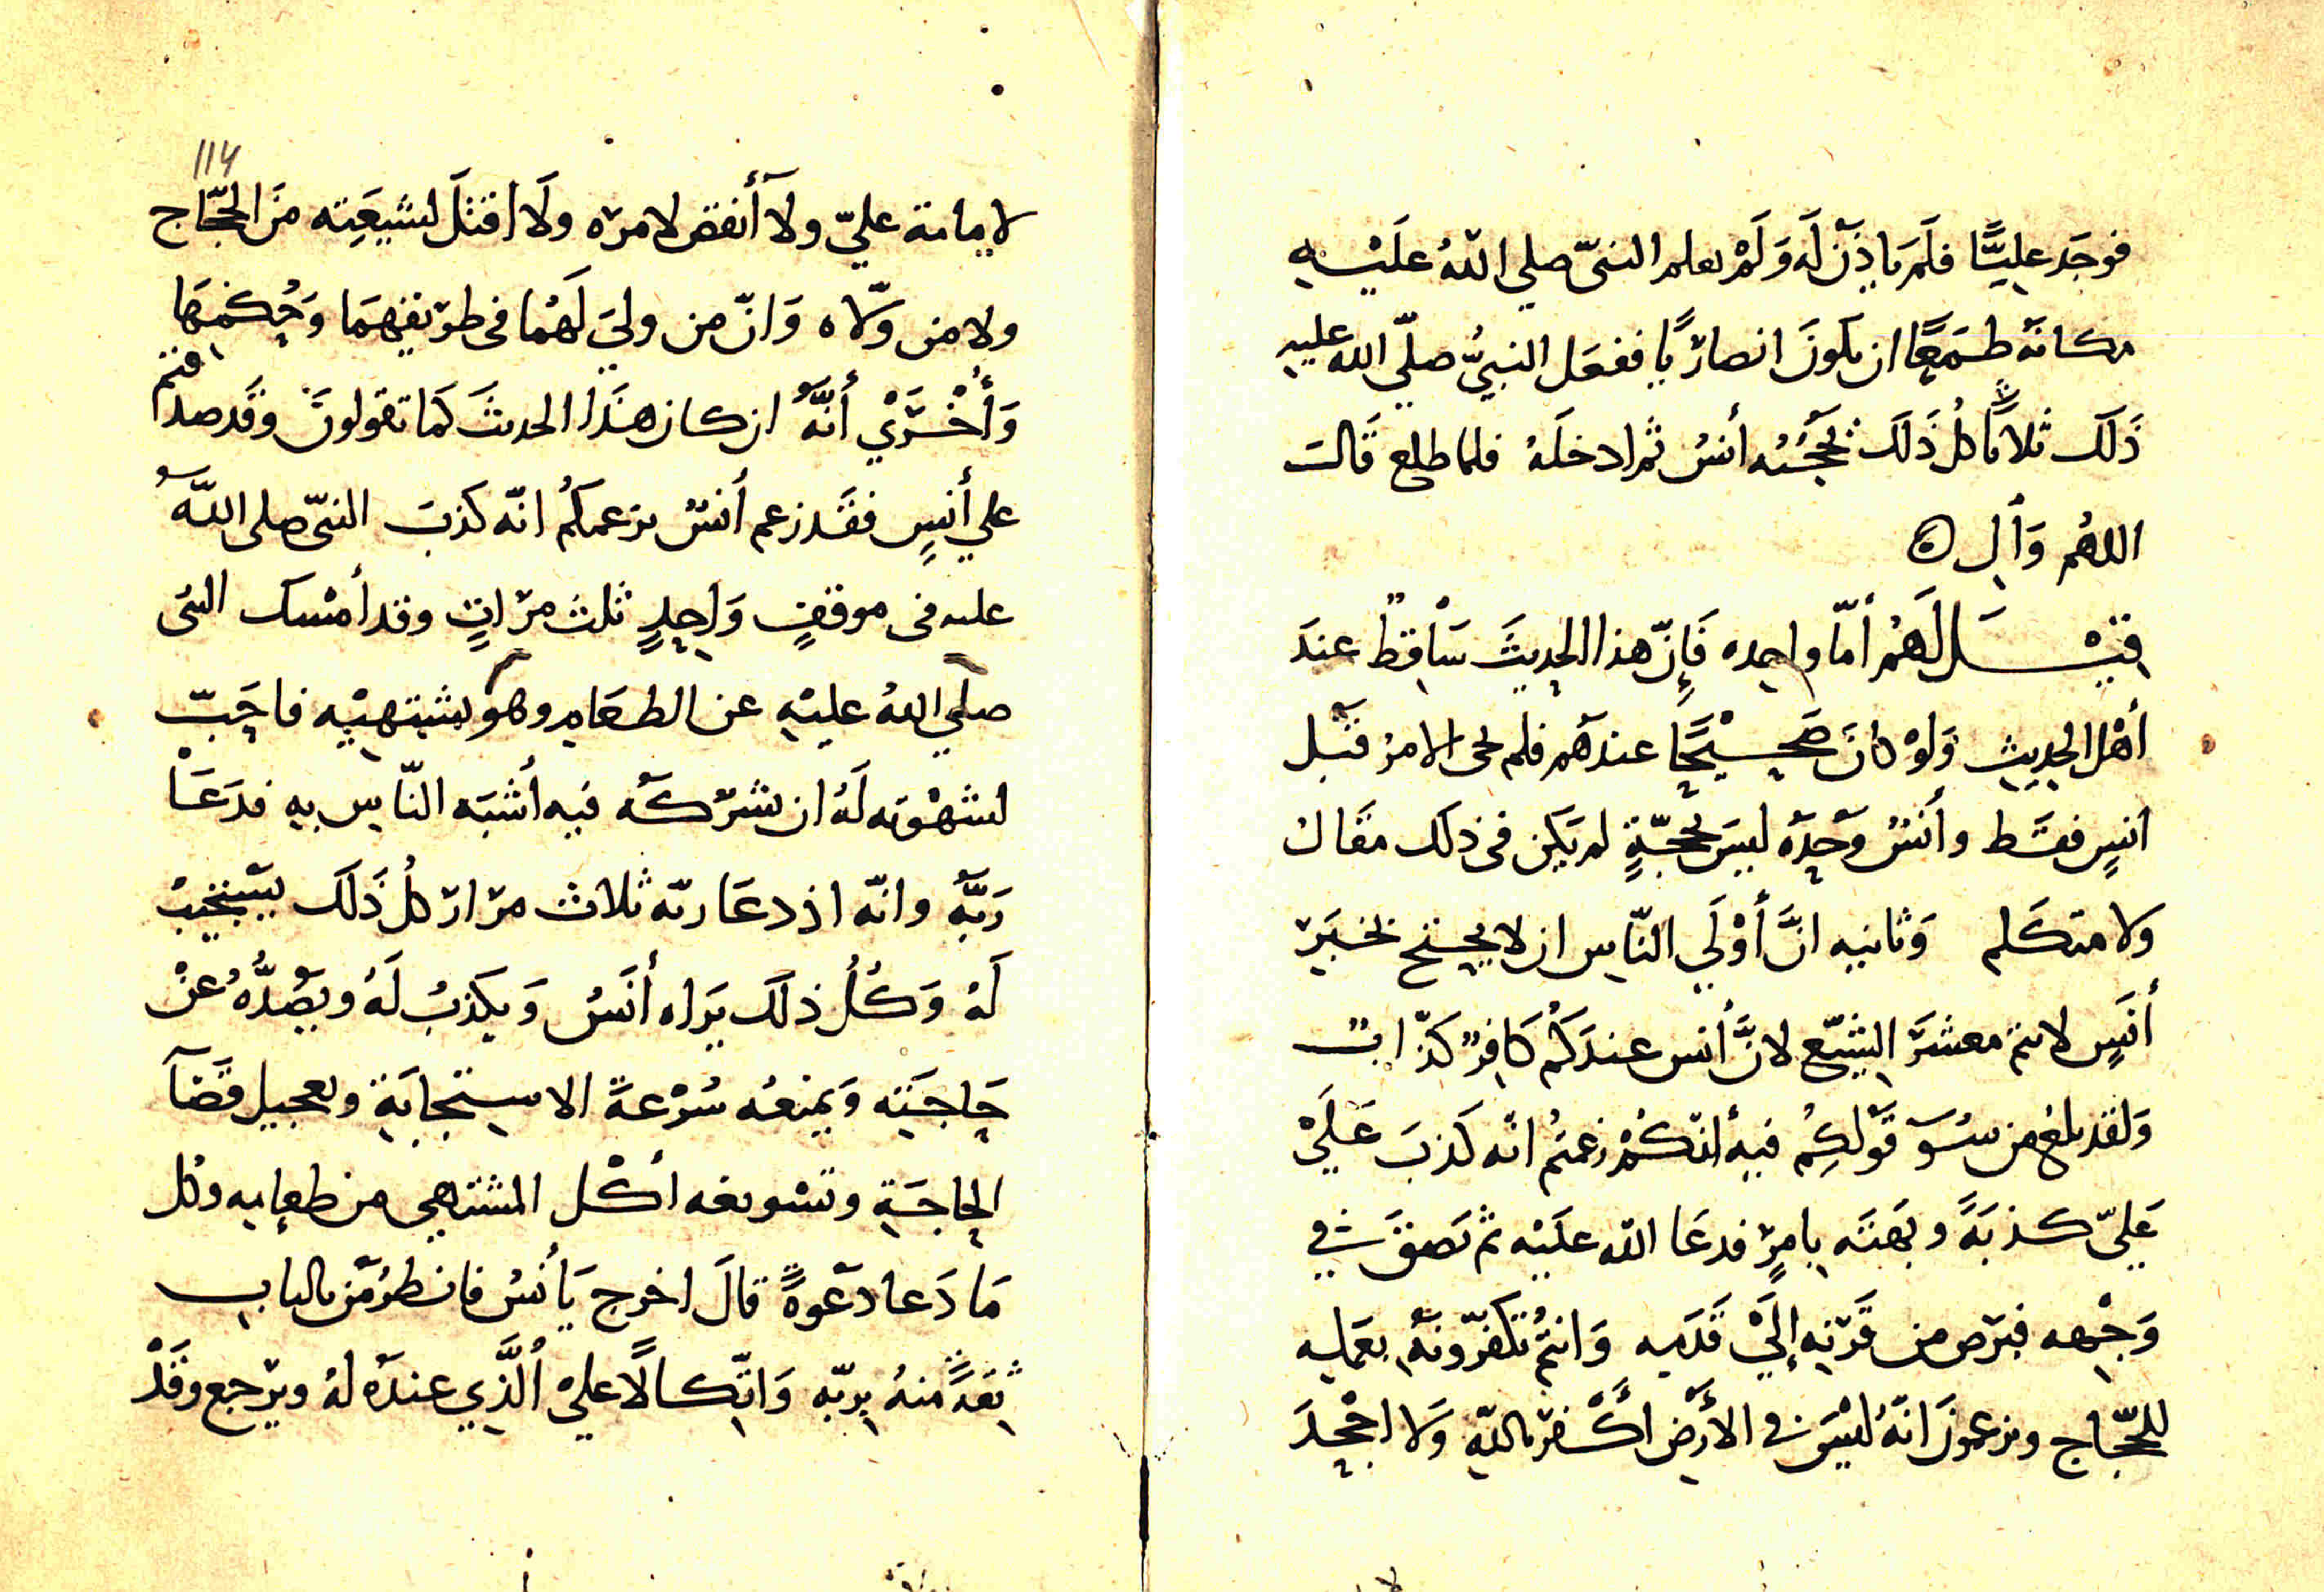 فوجَد عليًّا فلَم ياذَن لَه وَلَمْ يعلم النبىّ صلى اللهُ علَيْهِ
مكانَه طَمَعًا ان يكونَ انصاريًّا ففعَل النبيُّ صلّي الله عليه
ذَلكَ ثلاثًا كلُ ذَلكَ يَحجُبُه أنسُ ثم ادخلَهُ فلما طلع قَالَ
اللهُم وَالِ ۝
قِيْلَ لَهَمُ أمّا واحِده فَإِنّ هذا الحديثَ سَاقِطٌ عندَ
أهْل الحِديثِ وَلوْ كانَ صَحِيْحًا عندهم فلم يجى الامر قبْل
انسٍ فقَط وأنسُ وَحْدَه ليسَ بحُجّةٍ لم يَكن فى ذلك مقَال
ولا متكَلم وَثانيه انَّ أوْلَي النّاسِ ان لا يحتج بخبَر
أنَسٍ لانتم معشرَ الشِيَع لانَّ أنس عندَكُم كَافِرٌ كذّابٌ
وَلقد بلغ من سُوءِ قَولِكُم فيه أنّكُمْ زعمتُم انّه كَذبَ عَلَيْ
عَليّ كذبَةً وبَهتَه بامرٍ فدعَا الله علَيْه ثم بَصَقَ في
وَجْهِه فبَرِص من قَرْنِه إلَيْ قَدَمِه وَانتُم تُكَفّرونَهُ بعَملِه
للحجّاج وتزعمونَ انّهُ ليْسَ فى الأرضِ أَكْفر باللهِ وَلا اجْحِدَ
114
لامامة عليّ ولا أنقض لامره ولَا اقتَلَ لشيعَتِه منَ الحجّاج
ولا من ولّاه وَانّ من ولي لَهُما فى طريقهِمَا وَحُكمِهَا
وَأُخْرَي أنَّهُ ان كان هذَا الحديثَ كَما تقولونَ وقَد صدقتم
علي أنسٍ فقَد زعم أنسُ بزعمكُم انّه كذبَ النبىّ صلى اللهُ
عليه فى موقفٍ وَاحِدٍ ثلث مرّاتٍ وقد أمْسك النبى
صلي اللهُ عليْهِ عن الطعَام وهو يشتهيْه فاحَبّ
لشهْوته لَهُ ان يشرَكَه فيه أشبَه النّاس به فدَعَا
رَبَّهُ وانّه اذ دعَا ربّه ثلاث مرار كلُ ذَلكَ يسْتَجيبُ
لَهُ وَكُلُ ذلكَ يَراه أنَسُ وَيكَذبُ لَهُ ويصُدُّهُ عنْ
حَاجَتِه وَيمنعُه سُرْعةَ الاستجابَةِ وتعجيل قضَآ
الحاجَةِ وتسْويغه أكْل المشتهي من طعامِه وكل
مَا دَعا دعْوةً قالَ اخرج يَا أنسُ فانظر مَن بالبابِ
ثِقةً منهُ بربّه وَاتّكالًا علىْ الَّذِي عندَه لهُ ويرْجع وقَدْ